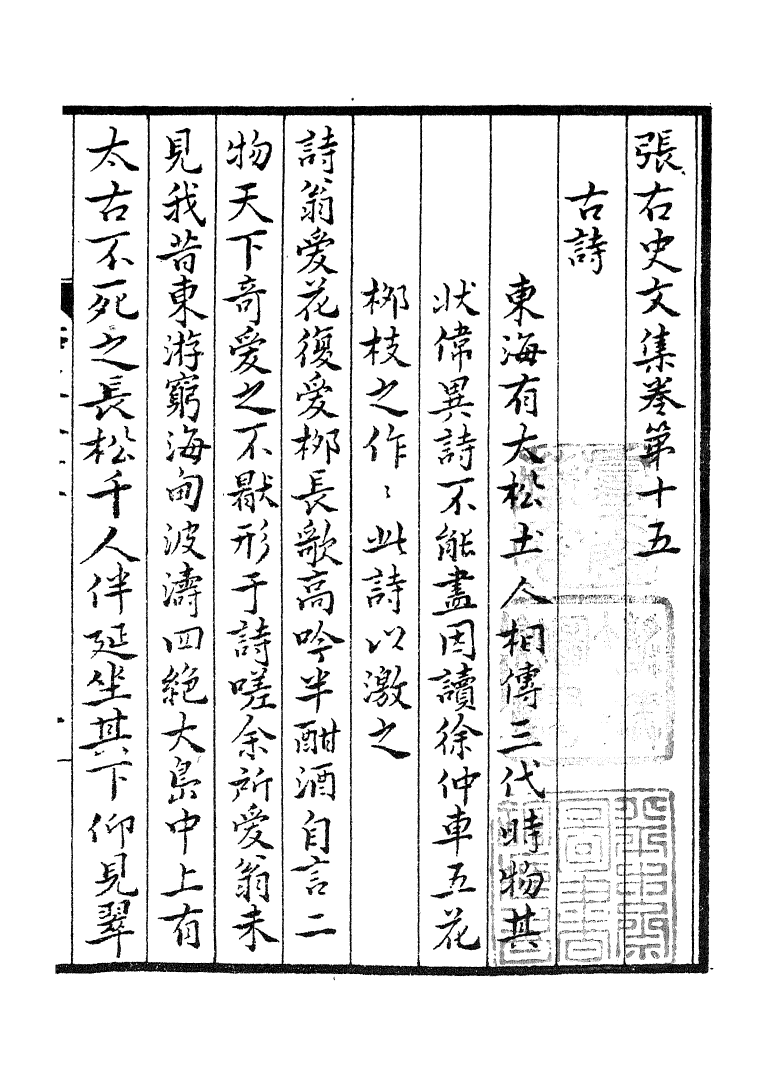 張右史文集卷第十五
古詩
東海有大松土人相傳三代時物其
狀偉異詩不能盡因讀徐仲車五花
栁枝之作〻此詩以激之
詩翁愛花復愛栁長歌高吟半酣酒自言二
物天下奇愛之不厭形于詩嗟余所愛翁未
見我昔東游窮海甸波濤四絶大島中上有
太古不死之長松千人伴延坐其下仰見翠